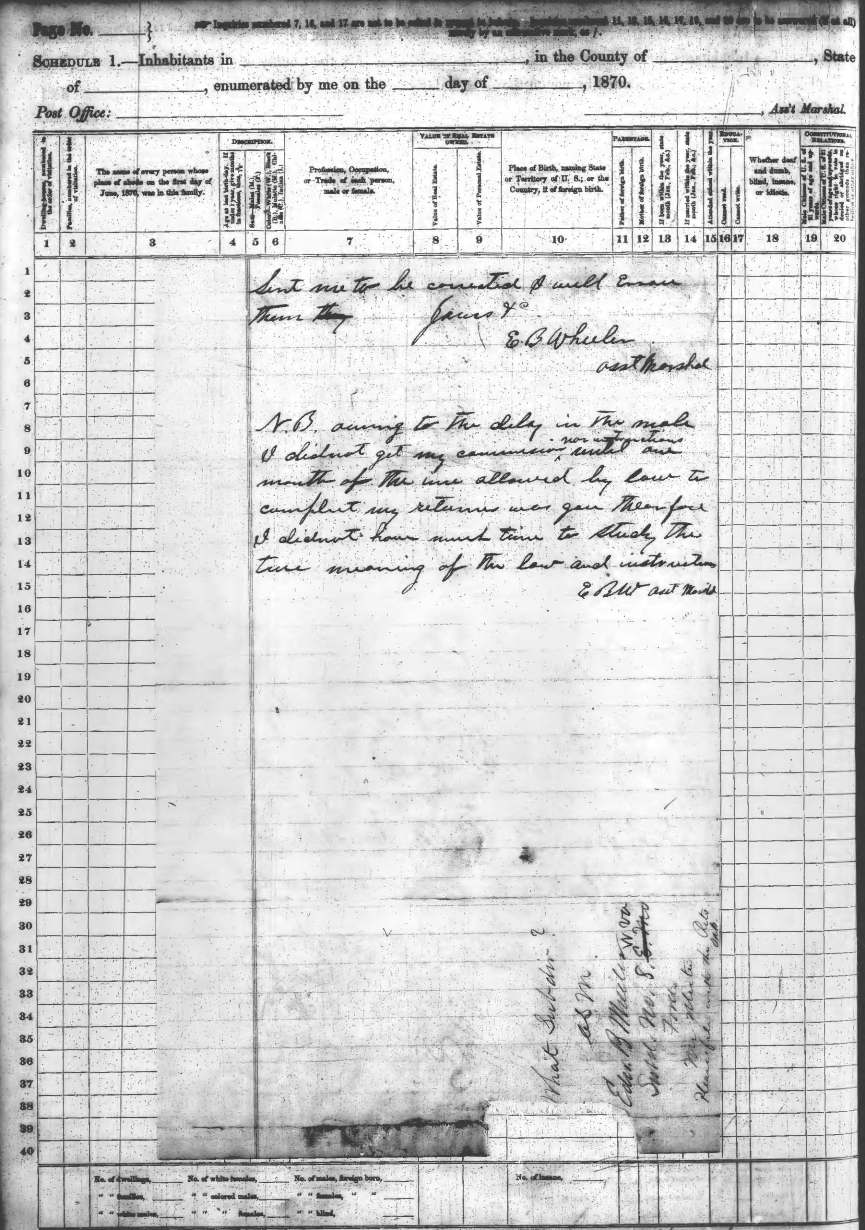 Page No.
Inquiries numbered 7, 16, and 17 are not to be asked in respect to infants. Inquiries numbered 11, 12, 15, 16, 17, 19, and 20 are to be answered (if at all)
merely by an affirmative mark, as /.
SCHEDULE 1.—Inhabitants in , in the County of , State
of , enumerated by me on the day of , 1870.
Post Office: , Ass't Marshal.
Dwelling-houses, numbered in the order of visitation.
Families, numbered in the order of visitation.
The name of every person whose place of abode on the first day of June, 1870, was in this family.
DESCRIPTION.
Profession, Occupation, or Trade of each person, male or female.
VALUE OF REAL ESTATE OWNED.
Value of Real Estate.
Value of Personal Estate.
Place of Birth, naming State or Territory of U. S.; or the Country, if of foreign birth.
PARENTAGE.
Father of foreign birth.
Mother of foreign birth.
If born within the year, state month (Jan., Feb., &c.)
If married within the year, state month (Jan., Feb., &c.)
Attended school within the year.
EDUCATION.
Cannot read.
Cannot write.
Whether deaf and dumb, blind, insane, or idiotic.
CONSTITUTIONAL RELATIONS.
1 2 3 4 5 6 7 8 9 10 11 12 13 14 15 16 17 18 19 20
1
2
3
4
5
6
7
8
9
10
11
12
13
14
15
16
17
18
19
20
21
22
23
24
25
26
27
28
29
30
31
32
33
34
35
36
37
38
39
40
Sent me to be corrected I will
them they Yours &c
E. B Wheeler
asst Marshal
N. B. owing to the delay in the male
nor instructions
I didnot get my commission until one
month of the time allowed by law to
complet my returns was gon therefore
I didnot have much time to study the
true meaning of the law and instructions
E BW asst Marshl
What Subdiv?
as M.
Edw. B Wheeler W Va
No. 8.
No. of dwellings, No. of white females, No. of males, foreign born, No. of insane,
" " families, " " colored males, " " females, " "
" " white males, " " " females, " " blind,